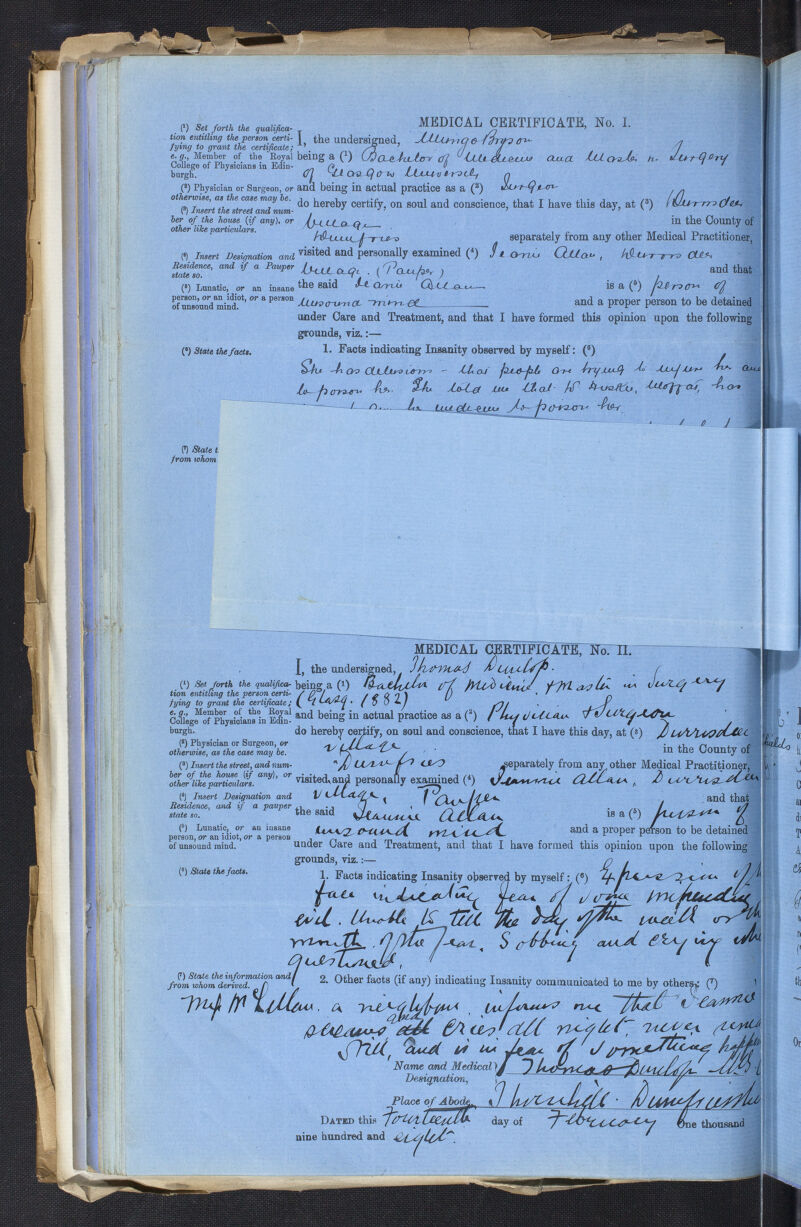 MEDICAL CERTIFICATE, No. I.
(¹) Set forth the qualifica-
tion entitling the person certi-
fying to grant the certificate;
e.g., Member of the Royal
College of Physicians in Edin-
burgh.
(²) Physician or Surgeon, or
otherwise, as the case may be.
(³) Insert the street and num-
ber of the house (if any), or
other like particulars.
(⁴) Insert Designation and
Residence, and if a Pauper
state so.
(⁵) Lunatic, or an insane
person, or an idiot, or a person
of unsound mind.
(⁶) State the facts.
(⁷) State t
from whom
I, the undersigned, Mungo Bryson
being a (¹) Bachelor of Medicine and Master in Surgery
of Glasgow University
and being in actual practice as a (²) Surgeon
do hereby certify, on soul and conscience, that I have this day, at (³) Durrisdeer
Village in the County of
Dumfries separately from any other Medical Practitioner,
visited and personally examined (⁴) Jeanie Allan, Durrisdeer
Village. (Pauper) and that
the said Jeanie Allan is a (⁵) person of
Unsound mind and a proper person to be detained
under Care and Treatment, and that I have formed this opinion upon the following
grounds, viz.:—
1. Facts indicating Insanity observed by myself: (⁶)
She has delusions - that people are trying to injure her and
to poison her. She told me that Dr Huskie, Moffat, has
her medicine to poison her
MEDICAL CERTIFICATE, No. II.
(¹) Set forth the qualifica-
tion entitling the person certi-
fying to grant the certificate;
e.g., Member of the Royal
College of Physicians in Edin-
burgh.
(²) Physician or Surgeon, or
otherwise, as the case may be.
(³) Insert the street, and num-
ber of the house (if any), or
other like particulars.
(⁴) Insert Designation and
Residence, and if a pauper
state so.
(⁵) Lunatic, or an insane
person, or an idiot, or a person
of unsound mind.
(⁶) State the facts.
(⁷) State the information and
from whom derived.
I, the undersigned, Thomas Dunlop.
being a (¹) Bachelor of Medicine, & Master in Surgery
(Glasg. 1882)
and being in actual practice as a (²) Physician & Surgeon
do hereby certify, on soul and conscience, that I have this day, at (³) Durrisdeer
Village in the County of
Dumfries separately from any other Medical Practitioner,
visited, and personally examined (⁴) Jeannie Allan, Durrisdeer
Village, Pauper and that
the said Jeannie Allan is a (⁵) person of
unsound mind and a proper person to be detained
under Care and Treatment, and that I have formed this opinion upon the following
grounds, viz.:—
1. Facts indicating Insanity observed by myself: (⁶) Expression of
face indicating fear of some impending
evil. Unable to tell the day of the week or
month of the year. Sobbing and crying when
questioned.
2. Other facts (if any) indicating Insanity communicated to me by others: (⁷)
McLellan. a neighbour informs me that Jeannie
screams and cries all night, never
still, and is in fear of something
Name and Medical Designation, Thomas Dunlop
Place of Abode, Thornhill. Dumfriesshire
DATED this Fourteenth day of February One thousand
nine hundred and eight.